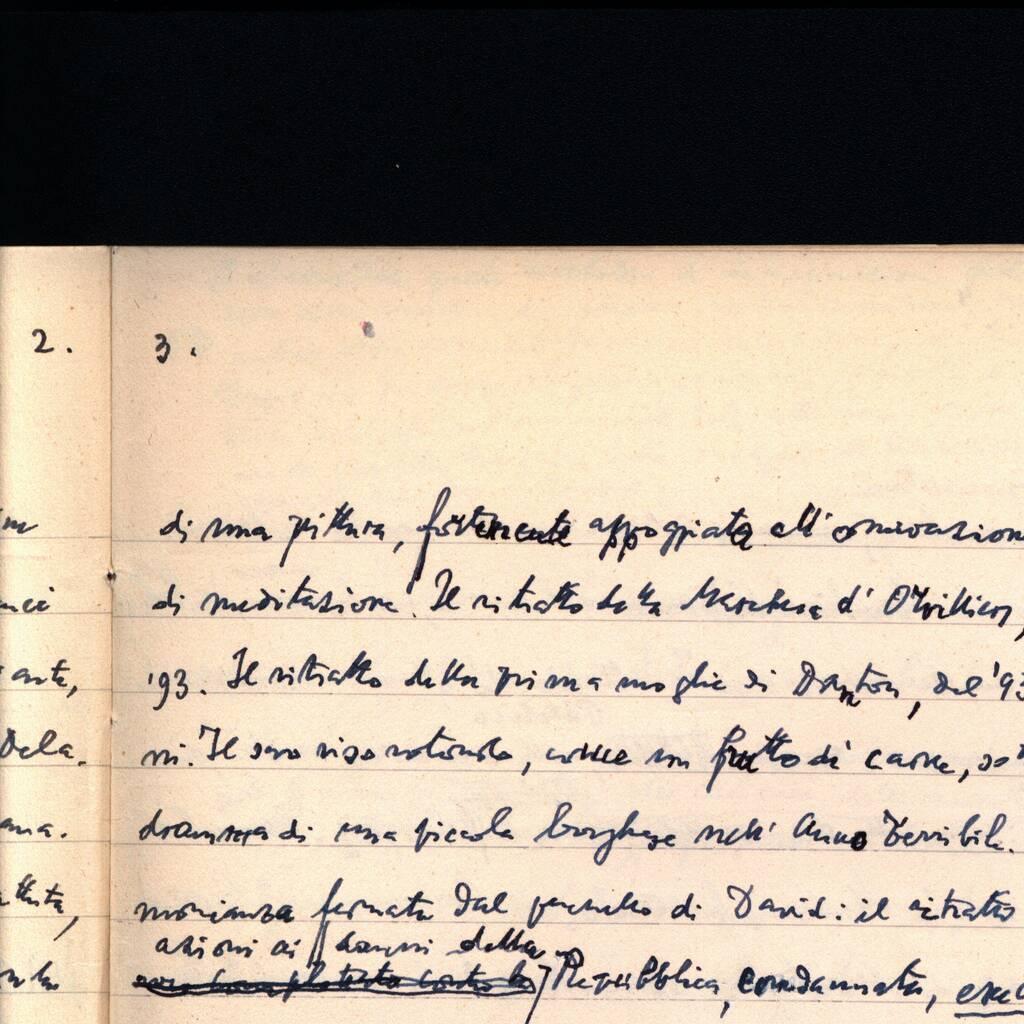 2.
3.
di una pittura, fortemente appoggiata all'osservazion
di meditazione. Il ritratto della Marchesa d'Orvilliers,
'93. Il ritratto della prima moglie di Danton, del '93
ni. Il suo viso rotondo, come un frutto di carne,
dramma di una piccola borghese nell'Anno Terribile.
monianza fermata dal pennello di David: il ritratto
azioni ai danni della
Repubblica, condannata,
ante,
Dela.